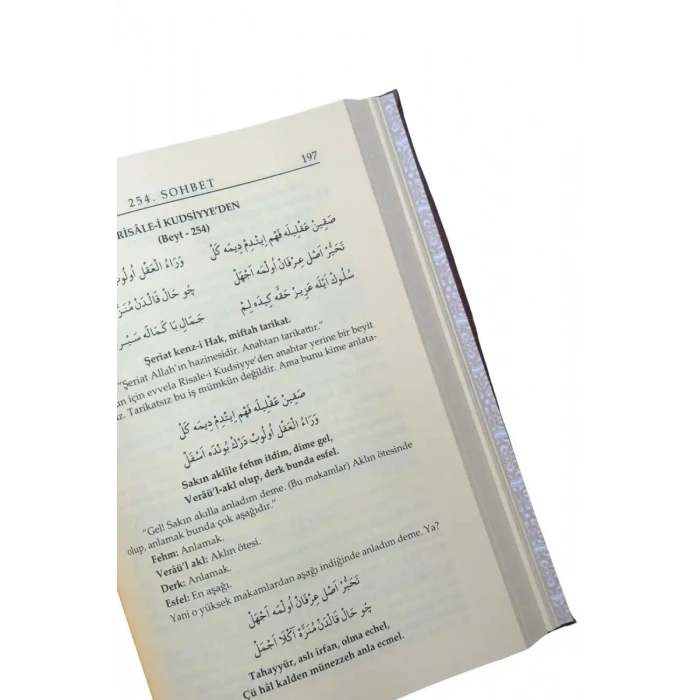 197
254. SOHBET
RİSÂLE-İ KUDSİYYE'DEN
(Beyt - 254)
صَقِينْ عَقْلِيلَه فَهْمِ اِيتِدِمْ دِيمَه كَلْ
وَرَاءُ الْعَقْلِ اُولُوبْ
تَحَيُّرْ اَصْلِ عِرْفَانْ اُولْمَه اَجْهَلْ
چُو حَالِ قَالْدَنْ مُنَزَّه
سُلُوكْ اَيْلَه عَزِيزْ حَقَّه كِيدَه لِمْ
جَمَالِ بَا كَمَالَه سَيْرِ
Şeriat kenz-i Hak, miftah tarikat.
"Şeriat Allah'ın hazinesidir. Anahtarı tarikattır."
için evvela Risale-i Kudsiyye'den anahtar yerine bir beyit
Tarikatsız bu iş mümkün değildir. Ama bunu kime anlata-
صَقِينْ عَقْلِيلَه فَهْمِ اِيتِدِمْ دِيمَه كَلْ
وَرَاءُ الْعَقْلِ اُولُوبْ دَرْكِ بُونْدَه اَسْفَلْ
Sakın aklile fehm itdim, dime gel,
Verâü'l-akl olup, derk bunda esfel.
"Gel! Sakın akılla anladım deme. (Bu makamlar) Aklın ötesinde
olup, anlamak bunda çok aşağıdır."
Fehm: Anlamak.
Verâü'l akl: Aklın ötesi.
Derk: Anlamak.
Esfel: En aşağı.
Yani o yüksek makamlardan aşağı indiğinde anladım deme. Ya?
تَحَيُّرْ اَصْلِ عِرْفَانْ اُولْمَه اَجْهَلْ
چُو حَالِ قَالْدَنْ مُنَزَّه اَكْلَا اَجْمَلْ
Tahayyür, aslı irfan, olma echel,
Çü hâl kalden münezzeh anla ecmel.